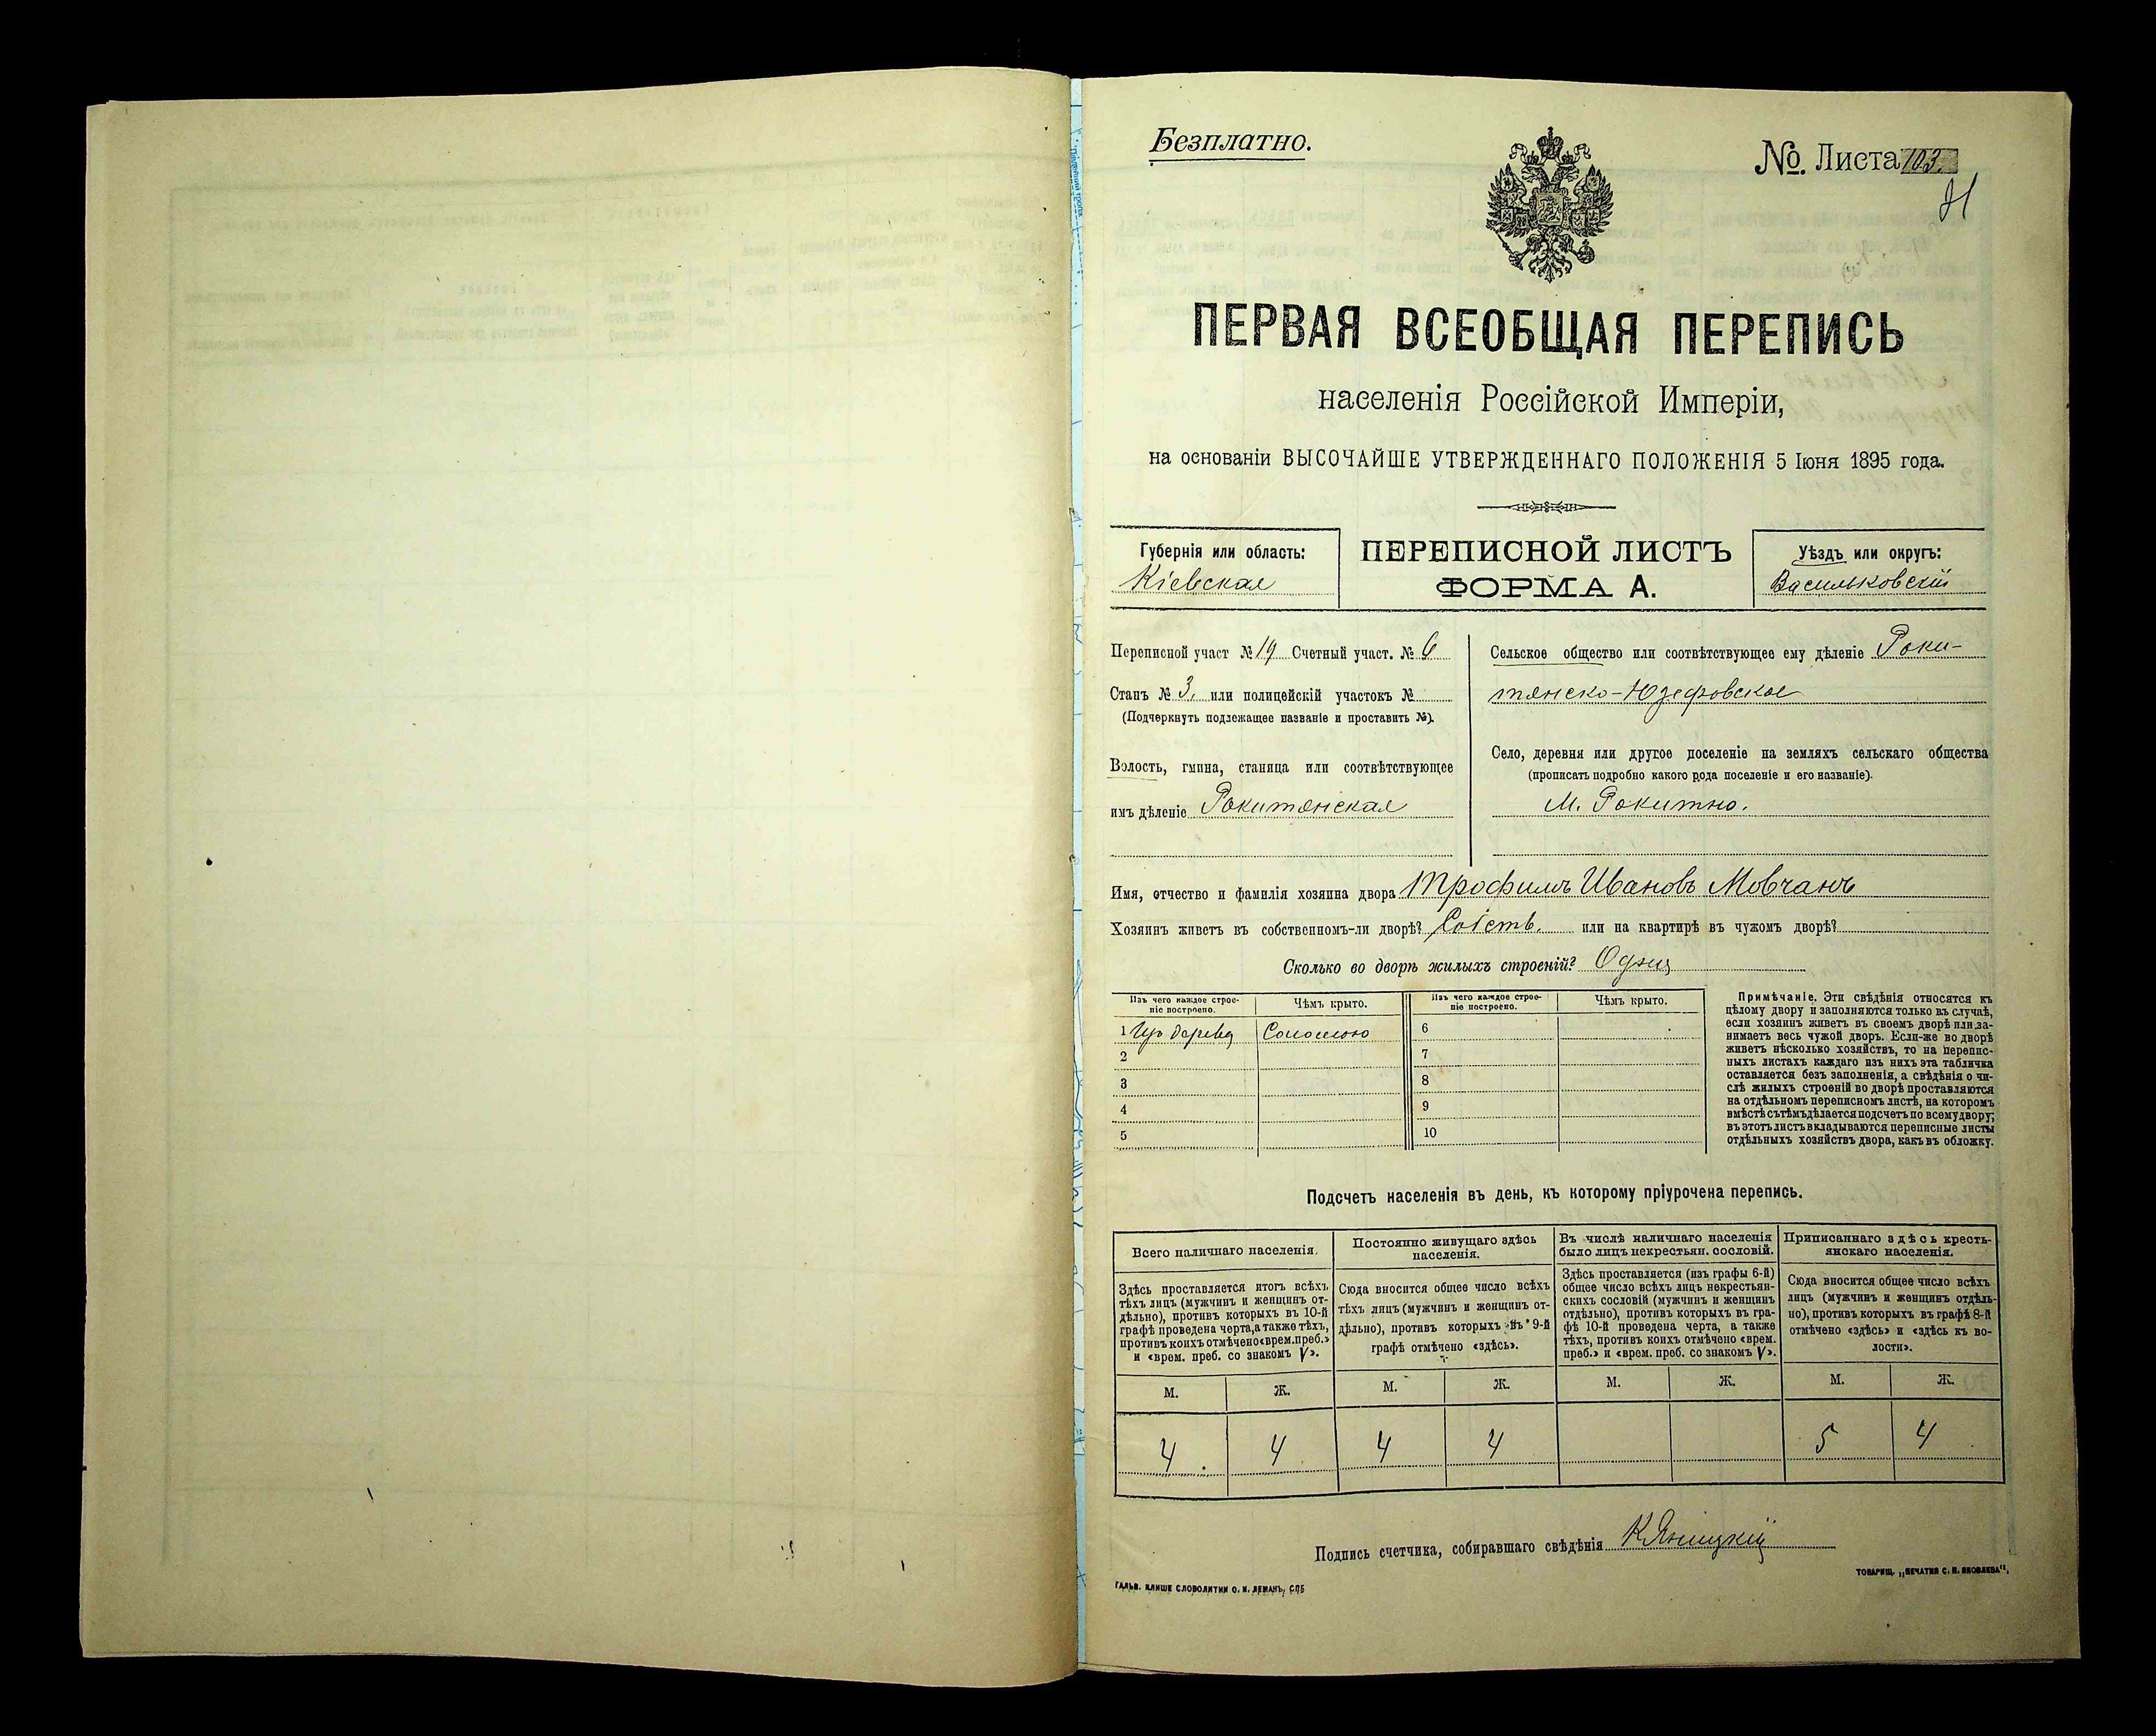 Безплатно.
№. Листа 103.
ПЕРВАЯ ВСЕОБЩАЯ ПЕРЕПИСЬ
населенія Россійской Имперіи,
на основаніи ВЫСОЧАЙШЕ УТВЕРЖДЕННАГО ПОЛОЖЕНІЯ 5 Іюня 1895 года.
Губернія или область:
Кіевская
ПЕРЕПИСНОЙ ЛИСТЪ
ФОРМА А.
Уѣздъ или округъ:
Васильковскій
Переписной участ № 19 Счетный участ. № 6
Станъ № 3, или полицейскій участокъ №
(Подчеркнуть подлежащее названіе и проставить №).
Волость, гмина, станица или соотвѣтствующее
имъ дѣленіе Рокитянская
Сельское общество или соотвѣтствующее ему дѣленіе Роки-
тянско-Юзефовское
Село, деревня или другое поселеніе на земляхъ сельскаго общества
(прописать подробно какого рода поселеніе и его названіе).
М. Рокитно.
Имя, отчество и фамилія хозяина двора Трофимъ Ивановъ Мовчанъ
Хозяинъ живетъ въ собственномъ-ли дворѣ? Собств. или на квартирѣ въ чужомъ дворѣ?
Сколько во дворѣ жилыхъ строеній? Одна
Изъ чего каждое строе-
ніе построено.
Чѣмъ крыто.
Изъ чего каждое строе-
ніе построено.
Чѣмъ крыто.
1 Изъ дерева Соломою 6
2 7
3 8
4 9
5 10
Примѣчаніе. Эти свѣдѣнія относятся къ
цѣлому двору и заполняются только въ случаѣ,
если хозяинъ живетъ въ своемъ дворѣ или за-
нимаетъ весь чужой дворъ. Если-же во дворѣ
живетъ нѣсколько хозяйствъ, то на перепис-
ныхъ листахъ каждаго изъ нихъ эта табличка
оставляется безъ заполненія, а свѣдѣнія о чи-
слѣ жилыхъ строеній во дворѣ проставляются
на отдѣльномъ переписномъ листѣ, на которомъ
вмѣстѣ съ тѣмъ дѣлается подсчетъ по всему двору;
въ этотъ листъ вкладываются переписные листы
отдѣльныхъ хозяйствъ двора, какъ въ обложку.
Подсчетъ населенія въ день, къ которому пріурочена перепись.
Всего наличнаго населенія.
Здѣсь проставляется итогъ всѣхъ
тѣхъ лицъ (мужчинъ и женщинъ от-
дѣльно), противъ которыхъ въ 10-й
графѣ проведена черта, а также тѣхъ,
противъ коихъ отмѣчено «врем. преб.»
и «врем. преб. со знакомъ V».
Постоянно живущаго здѣсь
населенія.
Сюда вносится общее число всѣхъ
тѣхъ лицъ (мужчинъ и женщинъ от-
дѣльно), противъ которыхъ въ 9-й
графѣ отмѣчено «здѣсь».
Въ числѣ наличнаго населенія
было лицъ некрестьян. сословій.
Здѣсь проставляется (изъ графы 6-й)
общее число всѣхъ лицъ некрестьян-
скихъ сословій (мужчинъ и женщинъ
отдѣльно), противъ которыхъ въ гра-
фѣ 10-й проведена черта, а также
тѣхъ, противъ коихъ отмѣчено «врем.
преб.» и «врем. преб. со знакомъ V».
Приписаннаго здѣсь кресть-
янскаго населенія.
Сюда вносится общее число всѣхъ
лицъ (мужчинъ и женщинъ отдѣль-
но), противъ которыхъ въ графѣ 8-й
отмѣчено «здѣсь» и «здѣсь къ во-
лости».
М. Ж. М. Ж. М. Ж. М. Ж.
4 4 4 4 5 4
Подпись счетчика, собиравшаго свѣдѣнія К Яницкій
ГАЛЬВ. КЛИШЕ СЛОВОЛИТНИ О. И. ЛЕМАНЪ, СПБ
ТОВАРИЩ. „ПЕЧАТНЯ С. П. ЯКОВЛЕВА",